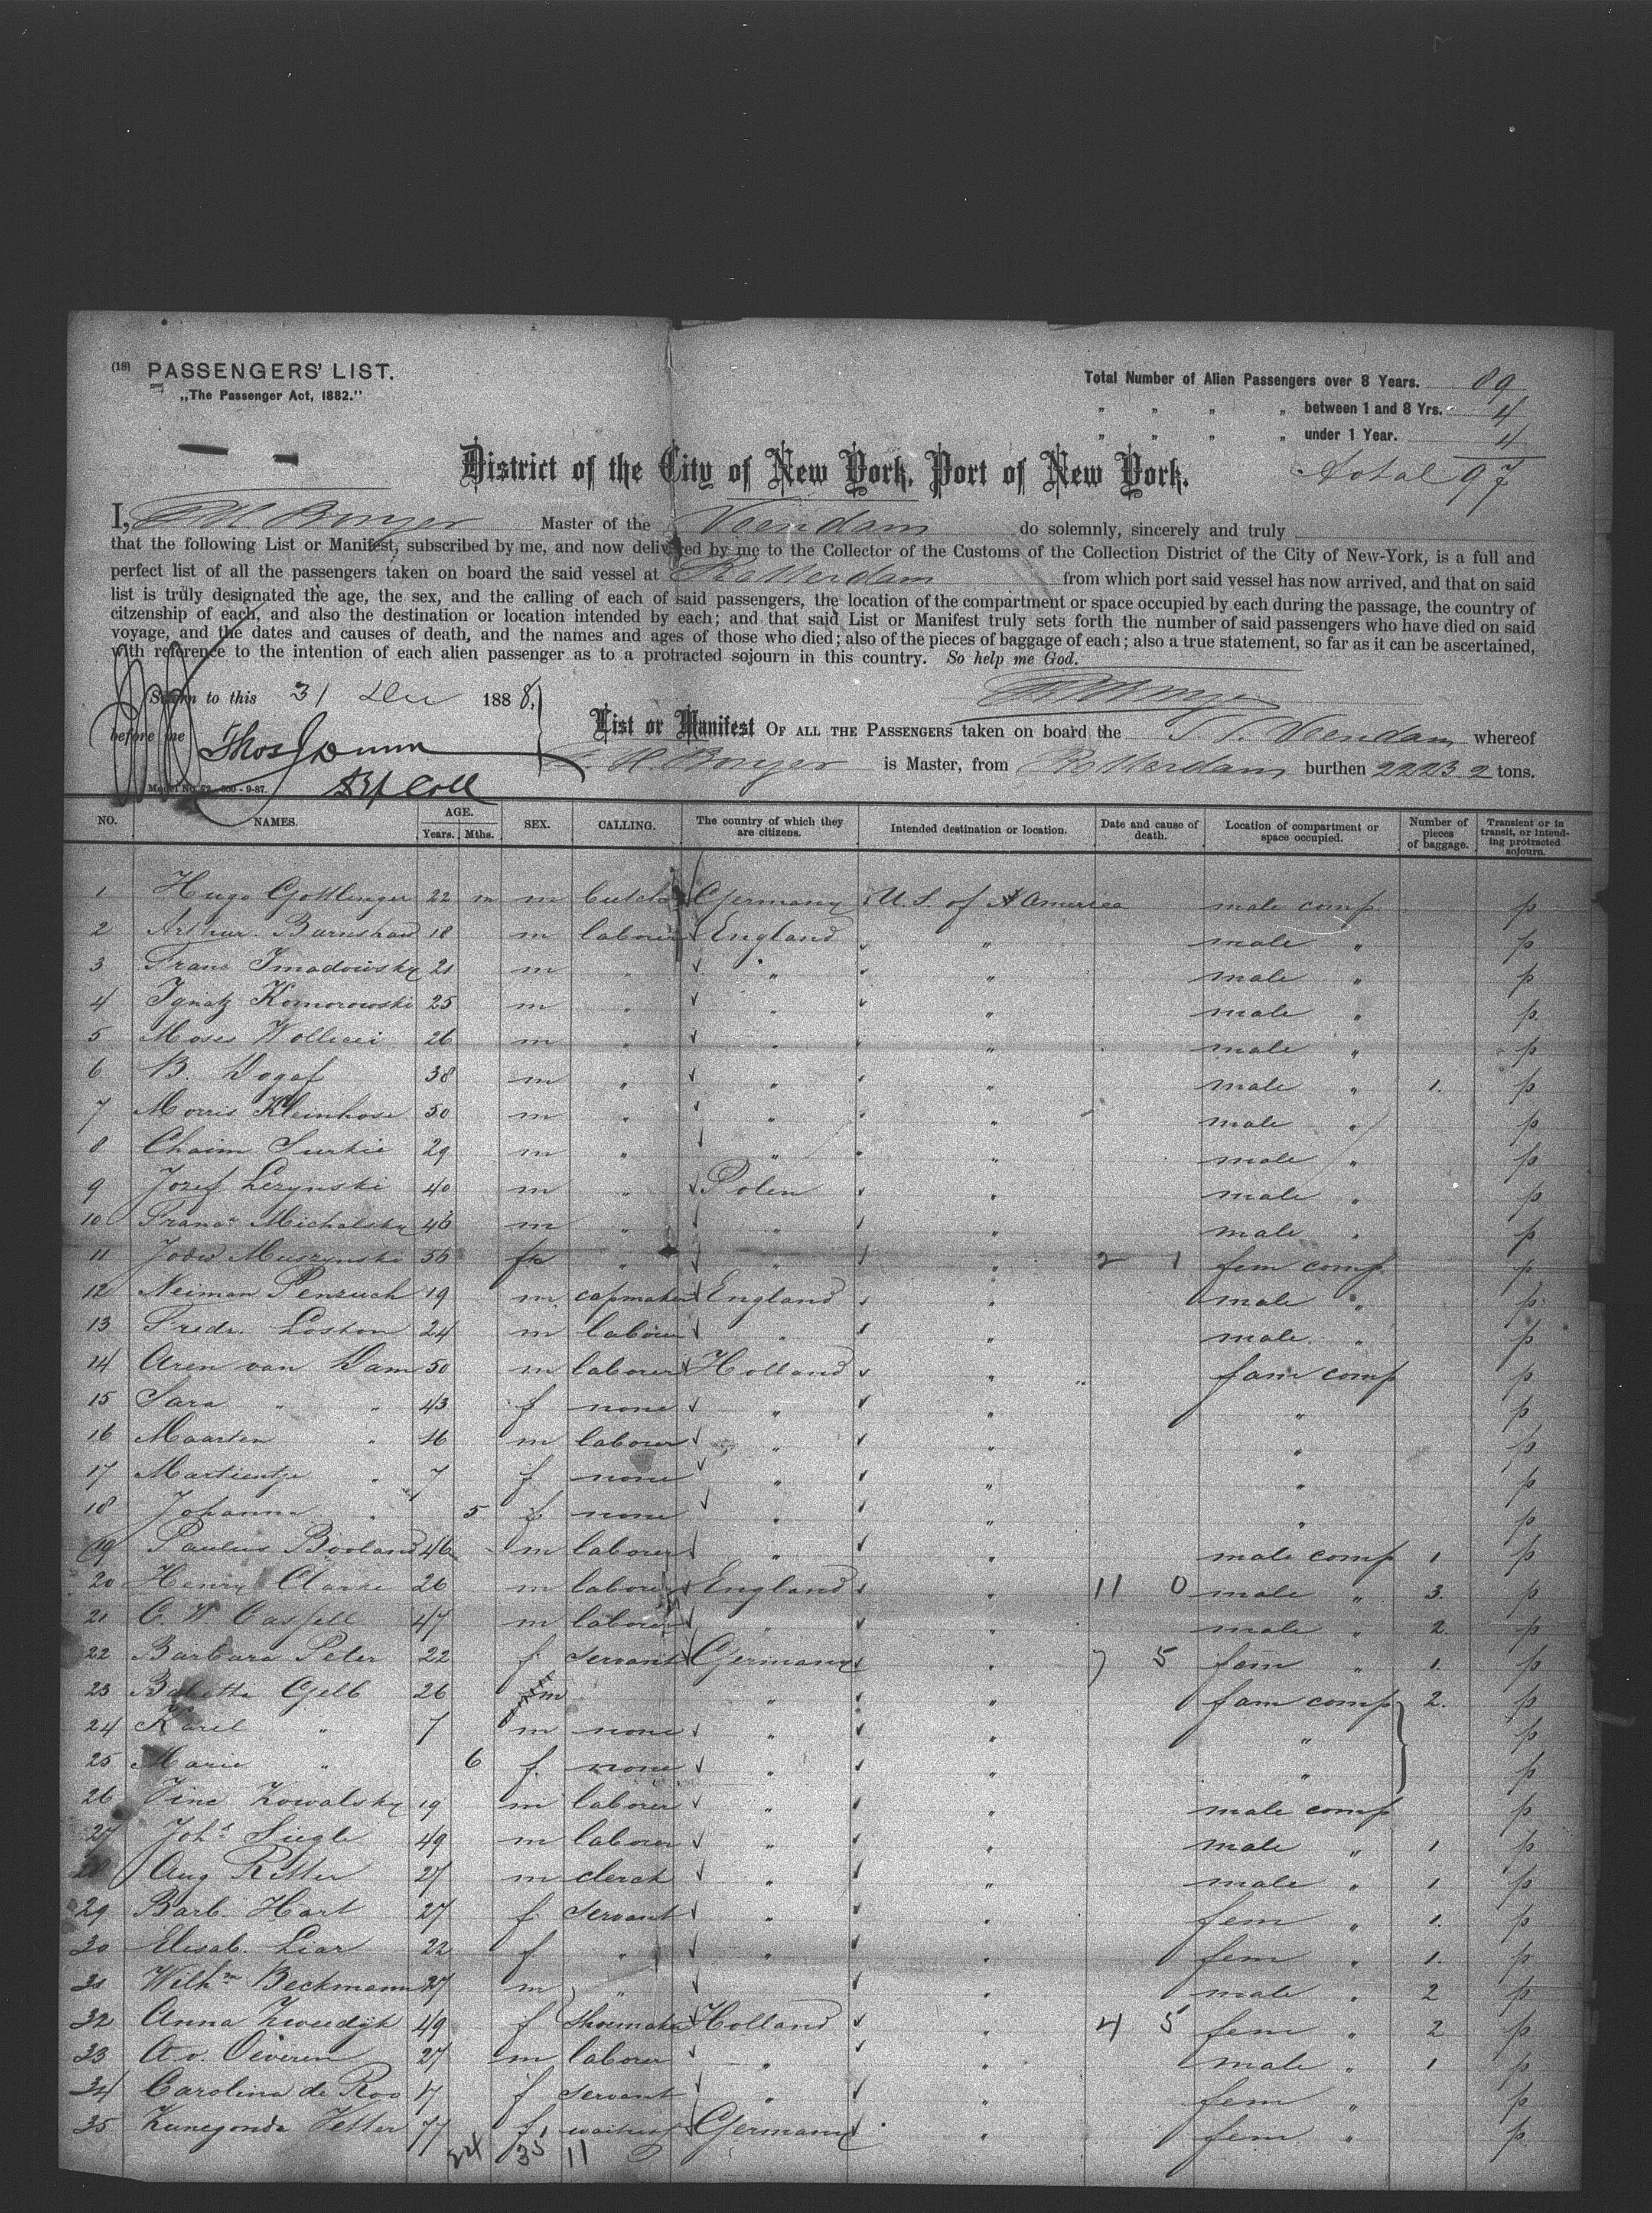 (18) PASSENGERS' LIST.
„The Passenger Act, 1882."
Total Number of Alien Passengers over 8 Years. 89
„ „ „ „ between 1 and 8 Yrs. 4
„ „ „ „ under 1 Year. 4
Total 97
District of the City of New York, Port of New York.
I, Bonjer Master of the Veendam do solemnly, sincerely and truly
that the following List or Manifest, subscribed by me, and now delivered by me to the Collector of the Customs of the Collection District of the City of New-York, is a full and
perfect list of all the passengers taken on board the said vessel at Rotterdam from which port said vessel has now arrived, and that on said
list is truly designated the age, the sex, and the calling of each of said passengers, the location of the compartment or space occupied by each during the passage, the country of
citzenship of each, and also the destination or location intended by each; and that said List or Manifest truly sets forth the number of said passengers who have died on said
voyage, and the dates and causes of death, and the names and ages of those who died; also of the pieces of baggage of each; also a true statement, so far as it can be ascertained,
with reference to the intention of each alien passenger as to a protracted sojourn in this country. So help me God.
Sworn to this 31 Dec 1888,
Bonjer
before me Thos Dunn
Dep Coll
List or Manifest OF ALL THE PASSENGERS taken on board the S. S. Veendam whereof
H. Bonjer is Master, from Rotterdam burthen tons.
Model No. 53 - 500 - 9-87.
NO. NAMES. AGE. Years. Mths. SEX. CALLING. The country of which they are citizens. Intended destination or location. Date and cause of death. Location of compartment or space occupied. Number of pieces of baggage. Transient or in transit, or intending protracted sojourn.
1 Hugo Gottlinger 22 m m butcher Germany U.S. of America male comp. p
2 Arthur Burnshaw 18 m laborer England „ male „ p
3 Franz Imadowsky 21 m „ „ „ male „ p
4 Ignatz Komorowski 25 m „ „ „ male „ p
5 Moses Wollicei 26 m „ „ „ male „ p
6 B. Dogaf 38 m „ „ „ male „ 1. p
7 Morris Kleinhose 50 m „ „ „ male „ p
8 Chaim Surkie 29 m „ „ „ male „ p
9 Jozef Lezynski 40 m „ Polen „ male „ p
10 Michalsky 46 m „ „ „ male „ p
11 Muszynski 56 „ „ „ 2 1 fem comp. p
12 Neiman Penzuch 19 m capmaker England „ male „ p
13 Fredr. Loston 24 m laborer „ „ male „ p
14 Aren van Dam 50 m laborer Holland „ fam comp p
15 Sara „ „ 43 f none „ „ „ p
16 Maarten „ 16 m laborer „ „ „ p
17 Martientje „ 7 f none „ „ „ p
18 Johanna „ 5 f none „ „ „ p
19 Paulus Booland 46 m laborer „ „ male comp 1 p
20 Henry Clarke 26 m laborer England „ 11 0 male „ 3. p
21 C. W. Cassell 47 m laborer „ „ male „ 2. p
22 Barbara Peter 22 f servant Germany „ 7 5 fem „ 1. p
23 Babetti Gelb 26 m „ „ fam comp 2. p
24 Karel „ 7 m none „ „ „ p
25 Marie „ 6 f. none „ „ „ p
26 Vinc Kowalsky 19 m laborer „ „ male comp p
27 Johs Siegle 49 m laborer „ „ male „ 1 p
28 Aug Ritter 27 m clerck „ „ male „ 1 p
29 Barb. Hart 27 f servant „ „ fem „ 1. p
30 Elisab. Liar 22 f „ „ „ fem „ 1. p
31 Wilhm Beckmann 27 m „ „ male „ 2 p
32 Anna Zweedijk 49 f shoemaker Holland „ 4 5 fem „ 2 p
33 A. v. Oeveren 27 m laborer „ „ male „ 1 p
34 Carolina de Roo 17 f servant „ „ fem „ p
35 Kunegonda Vetter 77 f. waitress Germany „ fem „ p
24 35 11